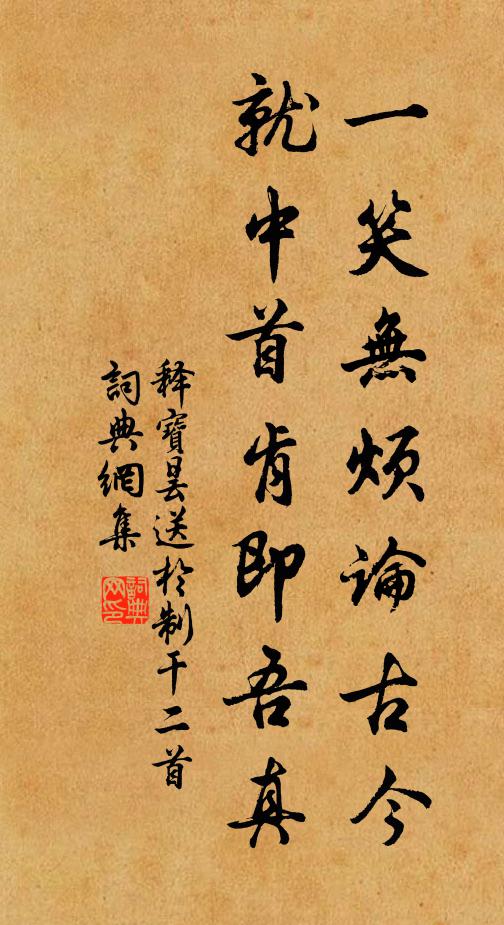 一笑無煩論古今
就中首肯即吾真
釋寶曇送於制干二首
詞典網集
詞典網印